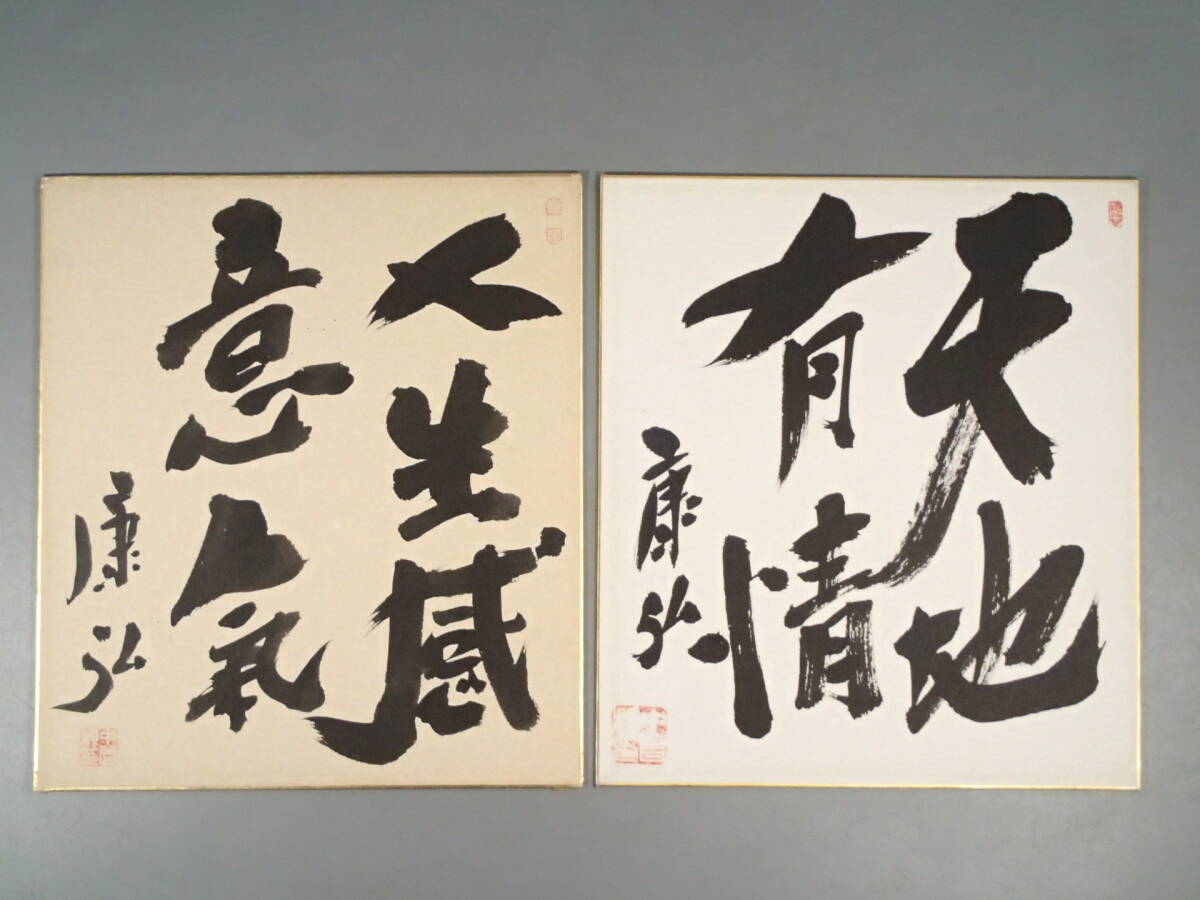 人生感
意氣
康弘
天地
有情
康弘